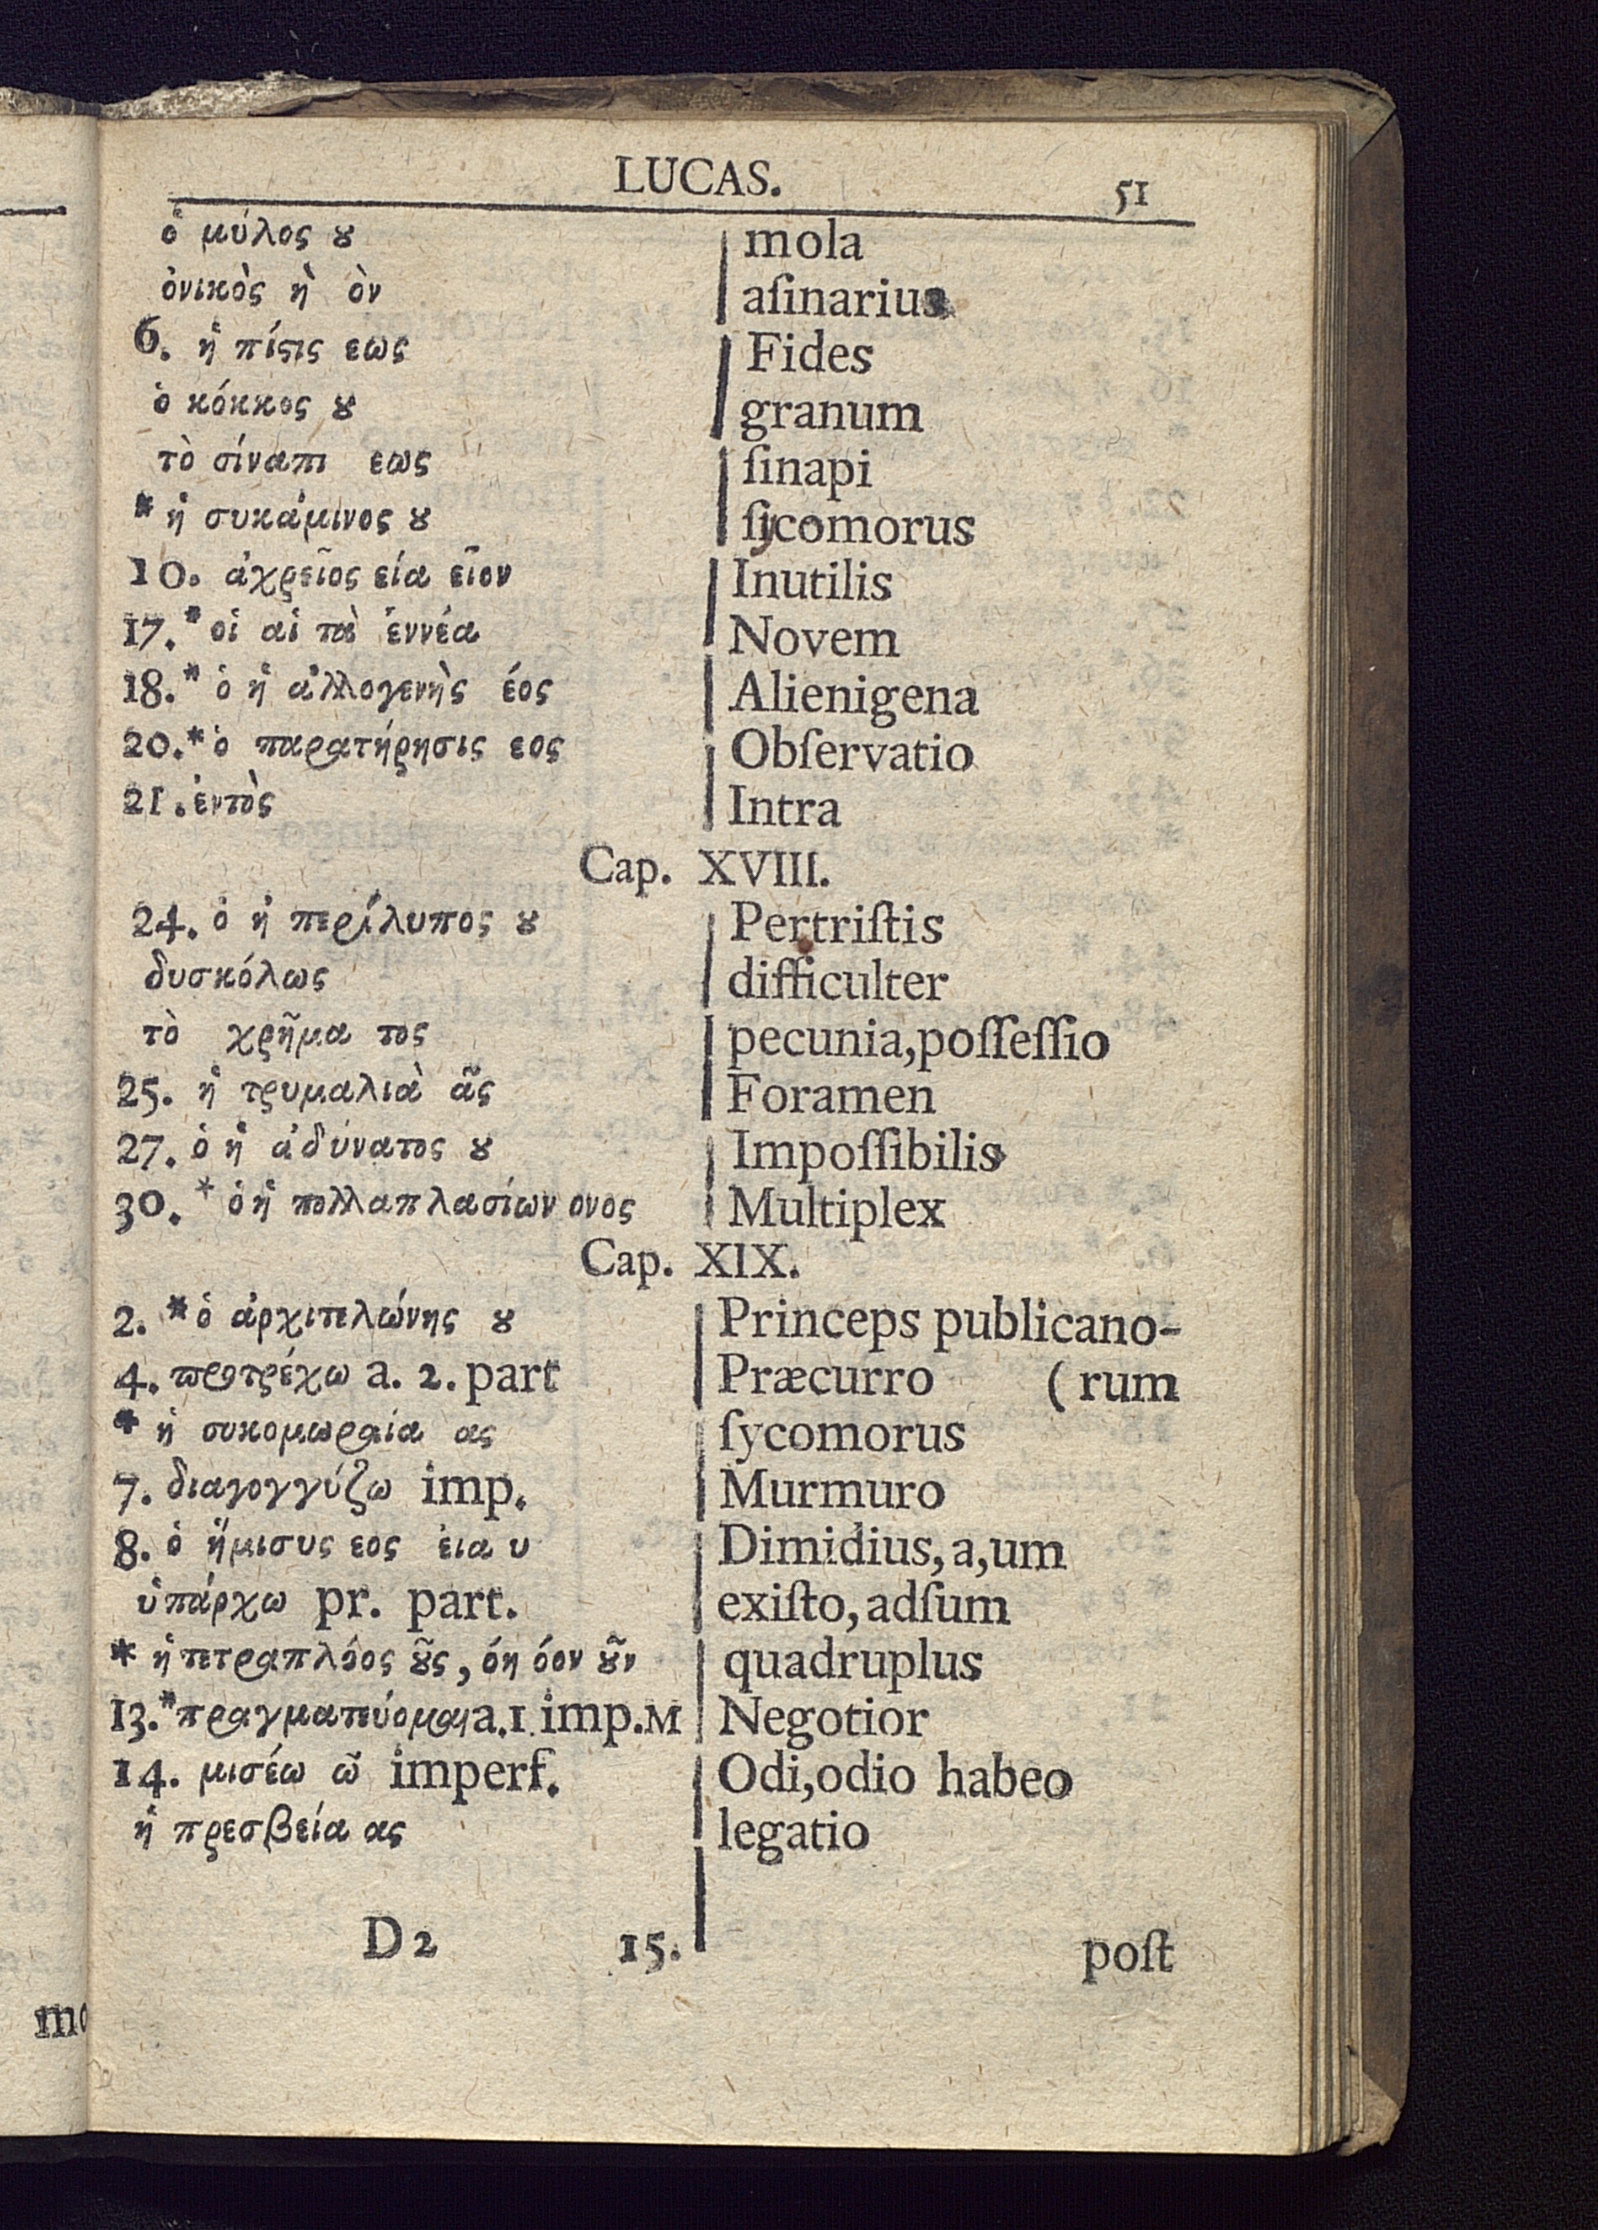 LUCAS. 51
ὁ μύλος ȣ | mola
ὀνικὸς ὴ ὸν | aſinarius
6. ἡ πίϛις εως | Fides
ὁ κόκκος ȣ | granum
τὸ σίναπι εως | ſinapi
* ἡ συκάμινος ȣ | ſycomorus
10. ἀχρεῖος εία εῖον | Inutilis
17.* οἱ αἱ τὰ ἐννέα | Novem
18.* ὁ ἡ ἀλλογενὴς έος | Alienigena
20.* ὁ παρατήρησις εος | Obſervatio
21. ἐντὸς | Intra
Cap. XVIII.
24. ὁ ἡ περίλυπος ȣ | Pertriſtis
δυσκόλως | difficulter
τὸ χρῆμα τος | pecunia,poſſeſſio
25. ἡ τρυμαλιὰ ᾶς | Foramen
27. ὁ ἡ ἀδύνατος ȣ | Impoſſibilis
30. * ὁ ἡ πολλαπλασίων ονος | Multiplex
Cap. XIX.
2. * ὁ ἀρχιτελώνης ȣ | Princeps publicano-
4. προτρέχω a. 2. part | Præcurro (rum
* ἡ συκομωραία ας | ſycomorus
7. διαγογγύζω imp. | Murmuro
8. ὁ ἥμισυς εος εια υ | Dimidius,a,um
ὑπάρχω pr. part. | exiſto,adſum
* ἡ τετραπλόος ȣ͂ς, όη όον ȣ͂ν | quadruplus
13.* πραγματεύομαι a.1 imp.M | Negotior
14. μισέω ῶ imperf. | Odi,odio habeo
ἡ πρεσβεία ας | legatio
D2 15. poſt